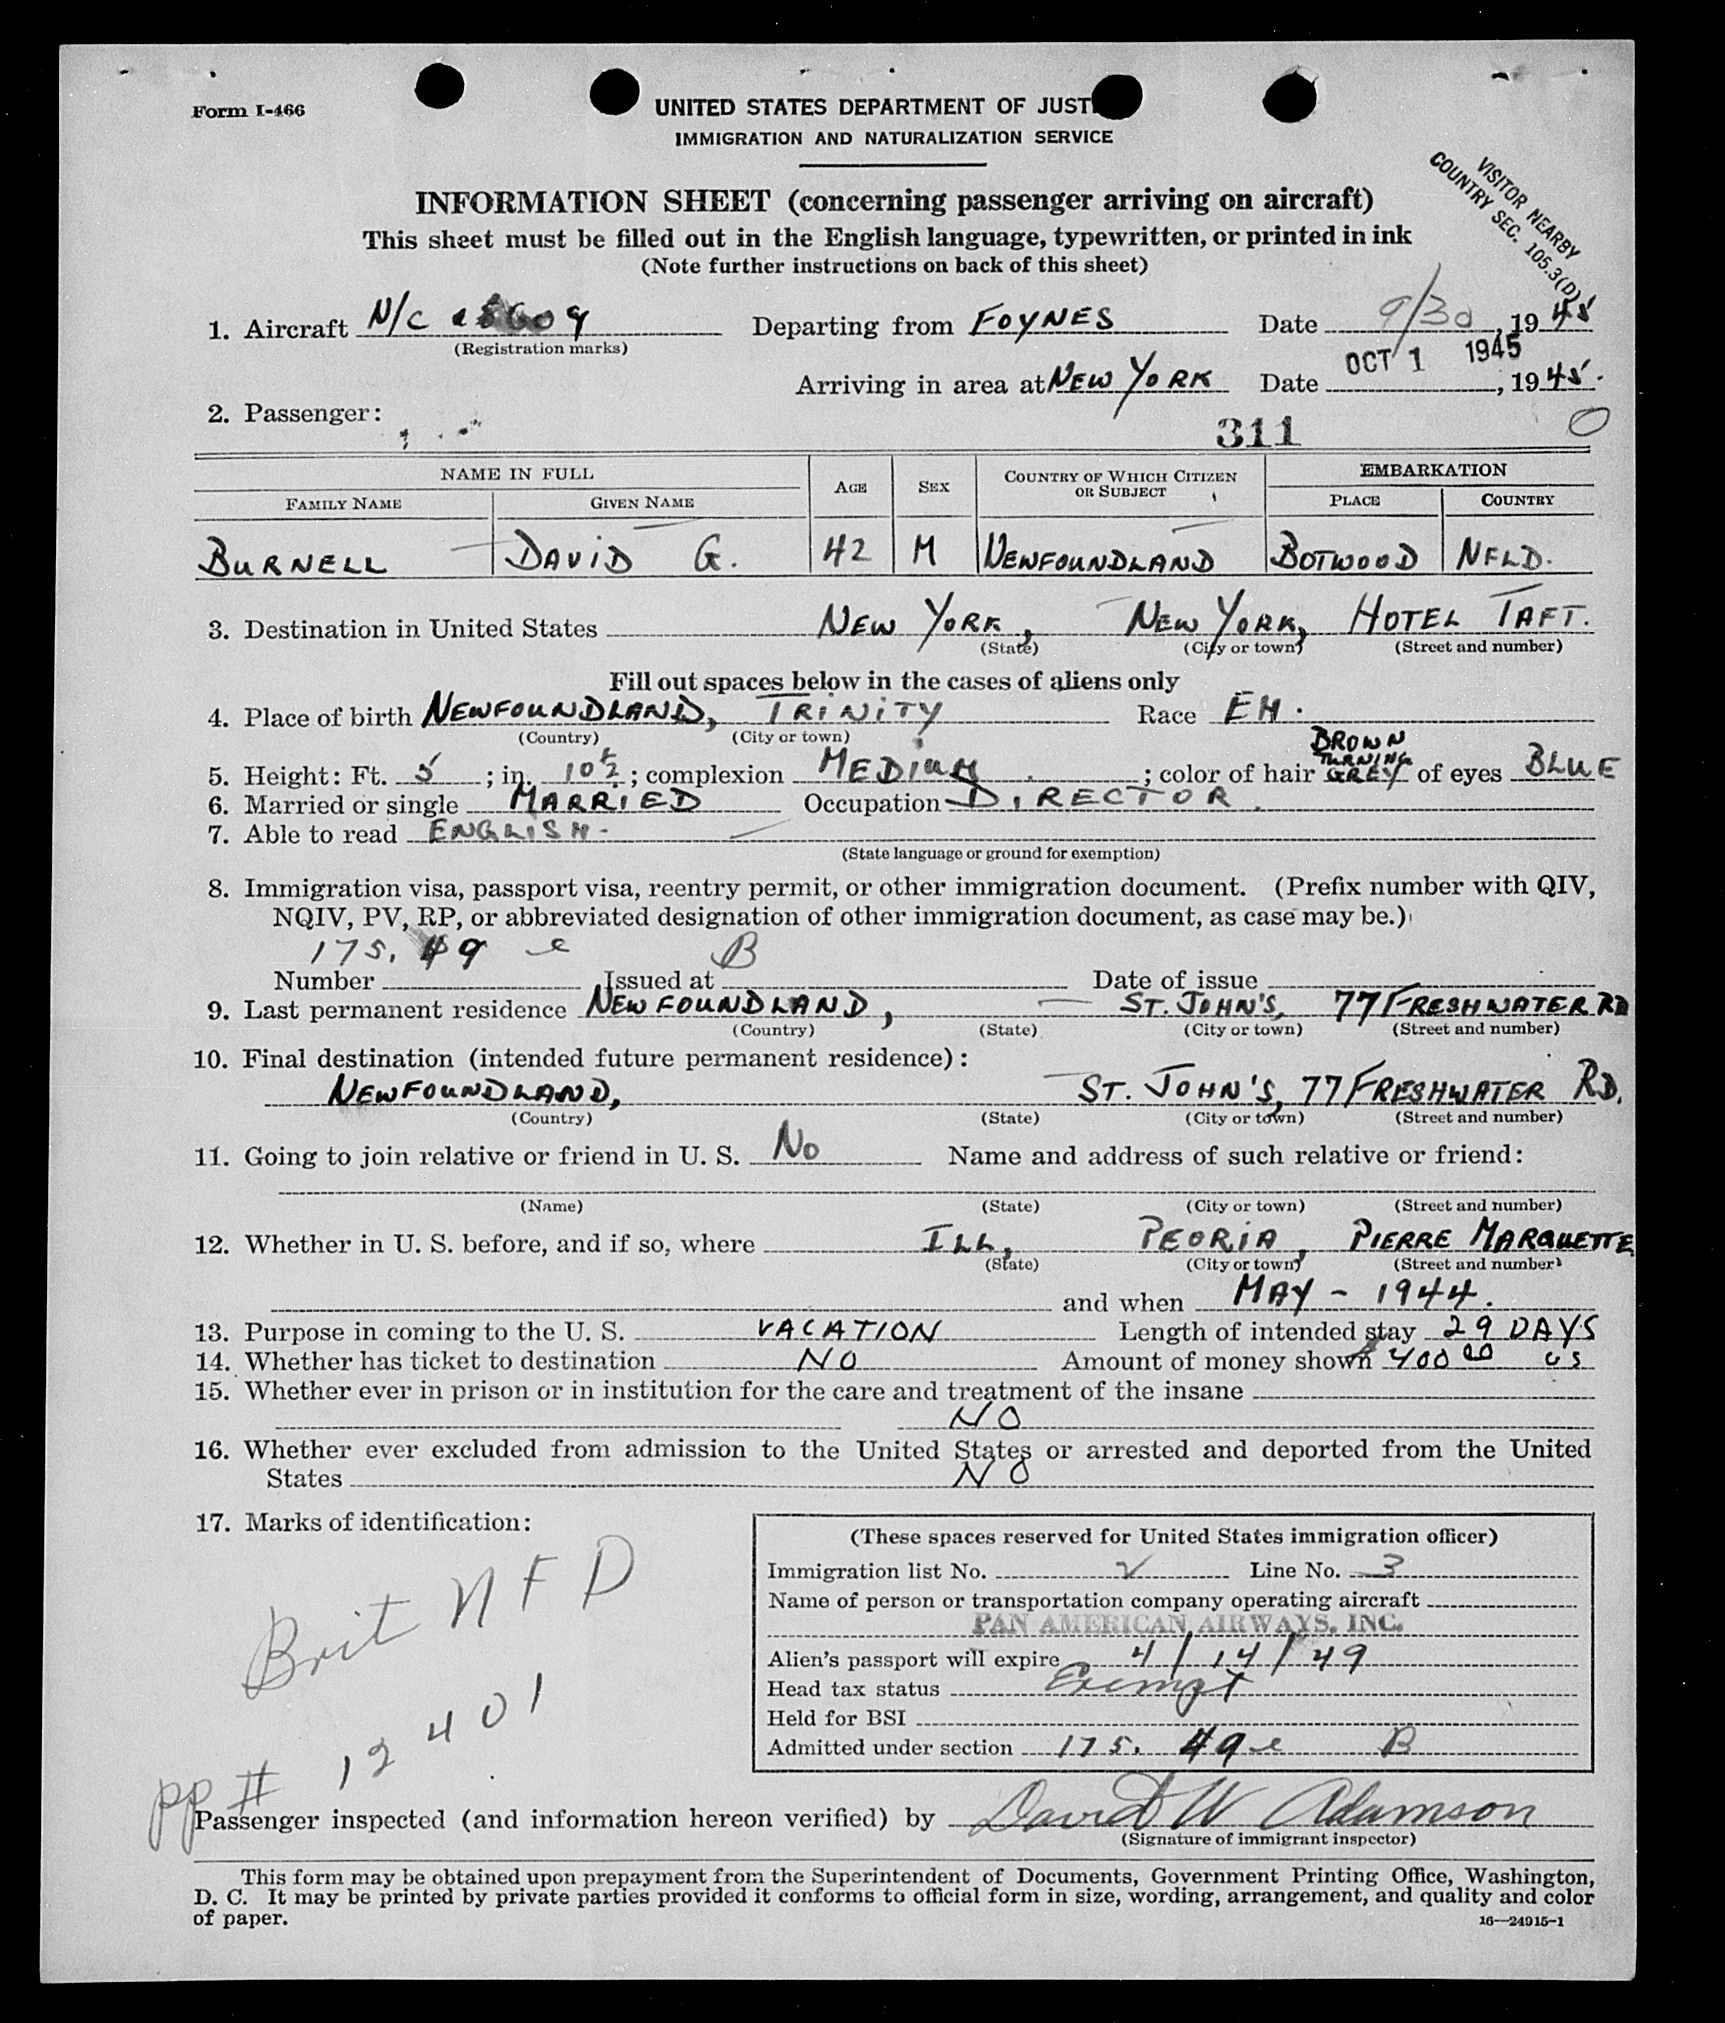 Form I-466
UNITED STATES DEPARTMENT OF JUST
IMMIGRATION AND NATURALIZATION SERVICE
VISITOR NEARBY
COUNTRY SEC. 105.3(D)
INFORMATION SHEET (concerning passenger arriving on aircraft)
This sheet must be filled out in the English language, typewritten, or printed in ink
(Note further instructions on back of this sheet)
1. Aircraft N/C Departing from FOYNES Date 9/30, 1945
(Registration marks)
OCT 1 1945
Arriving in area at NEW YORK Date , 1945.
2. Passenger:
311 0
NAME IN FULL AGE SEX COUNTRY OF WHICH CITIZEN OR SUBJECT EMBARKATION
FAMILY NAME GIVEN NAME PLACE COUNTRY
BURNELL DAVID G. 42 M NEWFOUNDLAND BOTWOOD NFLD.
3. Destination in United States NEW YORK, NEW YORK, HOTEL TAFT.
(State) (City or town) (Street and number)
Fill out spaces below in the cases of aliens only
4. Place of birth NEWFOUNDLAND, TRINITY Race EH.
(Country) (City or town)
BROWN
TURNING
5. Height: Ft. 5 ; in. 10½ ; complexion MEDIUM ; color of hair GREY of eyes BLUE
6. Married or single MARRIED Occupation DIRECTOR.
7. Able to read ENGLISH-
(State language or ground for exemption)
8. Immigration visa, passport visa, reentry permit, or other immigration document. (Prefix number with QIV,
NQIV, PV, RP, or abbreviated designation of other immigration document, as case may be.)
175. 49 e B
Number Issued at Date of issue
9. Last permanent residence NEWFOUNDLAND, — ST. JOHN'S, 77 FRESHWATER RD
(Country) (State) (City or town) (Street and number)
10. Final destination (intended future permanent residence):
NEWFOUNDLAND, — ST. JOHN'S, 77 FRESHWATER RD.
(Country) (State) (City or town) (Street and number)
11. Going to join relative or friend in U. S. No Name and address of such relative or friend:
(Name) (State) (City or town) (Street and number)
12. Whether in U. S. before, and if so, where ILL, PEORIA, PIERRE MARQUETTE
(State) (City or town) (Street and number)
and when MAY - 1944.
13. Purpose in coming to the U. S. VACATION Length of intended stay 29 DAYS
14. Whether has ticket to destination NO Amount of money shown 400 00 US
15. Whether ever in prison or in institution for the care and treatment of the insane
NO
16. Whether ever excluded from admission to the United States or arrested and deported from the United
States NO
17. Marks of identification:
Brit NFD
pp # 12401
(These spaces reserved for United States immigration officer)
Immigration list No. 2 Line No. 3
Name of person or transportation company operating aircraft
PAN AMERICAN AIRWAYS, INC.
Alien's passport will expire 4/14/49
Head tax status Exempt
Held for BSI
Admitted under section 175. 49 e B
Passenger inspected (and information hereon verified) by David W Adamson
(Signature of immigrant inspector)
This form may be obtained upon prepayment from the Superintendent of Documents, Government Printing Office, Washington,
D. C. It may be printed by private parties provided it conforms to official form in size, wording, arrangement, and quality and color
of paper.
16—24915-1